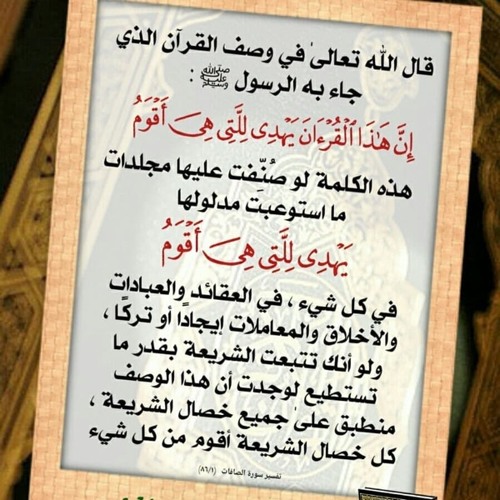 قال الله تعالىٰ في وصف القرآن الذي
جاء به الرسول ﷺ :
إِنَّ هَٰذَا ٱلْقُرْءَانَ يَهْدِى لِلَّتِى هِىَ أَقْوَمُ
هذه الكلمة لو صُنِّفت عليها مجلدات
ما استوعبت مدلولها
يَهْدِى لِلَّتِى هِىَ أَقْوَمُ
في كل شيء ، في العقائد والعبادات
والأخلاق والمعاملات إيجادًا أو تركًا ،
ولو أنك تتبعت الشريعة بقدر ما
تستطيع لوجدت أن هذا الوصف
منطبق علىٰ جميع خصال الشريعة ،
كل خصال الشريعة أقوم من كل شيء
تفسير سورة الصافات (٨٦/١)